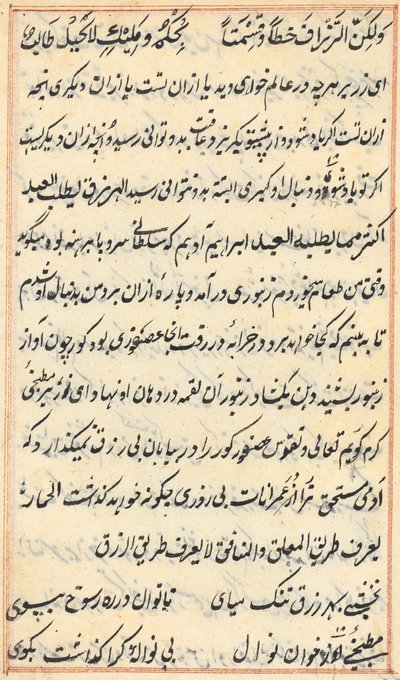 ولکن الرزاق خطا وقسمتا بحکم وملیک لا تحیل طالب
ای زریر هرچه در عالم خواری دید یا ازان تست یا ازان دیگری انچه
ازان تست اگر باد شود و از پیش تو بگریزد عاقبت بدو توانی رسید و انچه ازان دیگریست
اگر تو باد شوی و دنبال او گیری البته بدو نتوانی رسید الرزق یطلب العبد
اکثر مما یطلبه العبد ابراهیم ادهم که سلطانی سر و پا برهنه بود میگوید
وقتی من طعام میخوردم زنبوری در آمد و پاره ازان برد من بدنبال او شدم
تا ببینم که کجا خواهد برد در خرابه در رفت انجا عصفوری بود کور چون آواز
زنبور بشنید دهن بگشاد زنبور آن لقمه در دهان او نهاد ای نور بر مطبخی
کرم گویم تعالی و تقدس عصفور کور را در بیابان بی رزق نمیگذارد که
آدمی مستحق تر از عمرانات بی روزی چگونه خواهد گذاشت الحمار
یعرف طریق المعلف والمنافق لا یعرف طریق الرزق
نخشبی بهر رزق تنک میای تا توان در ره رسوخ بپوی
مطبخی از خوان نوال بی نواله کرا گذاشت بگوی